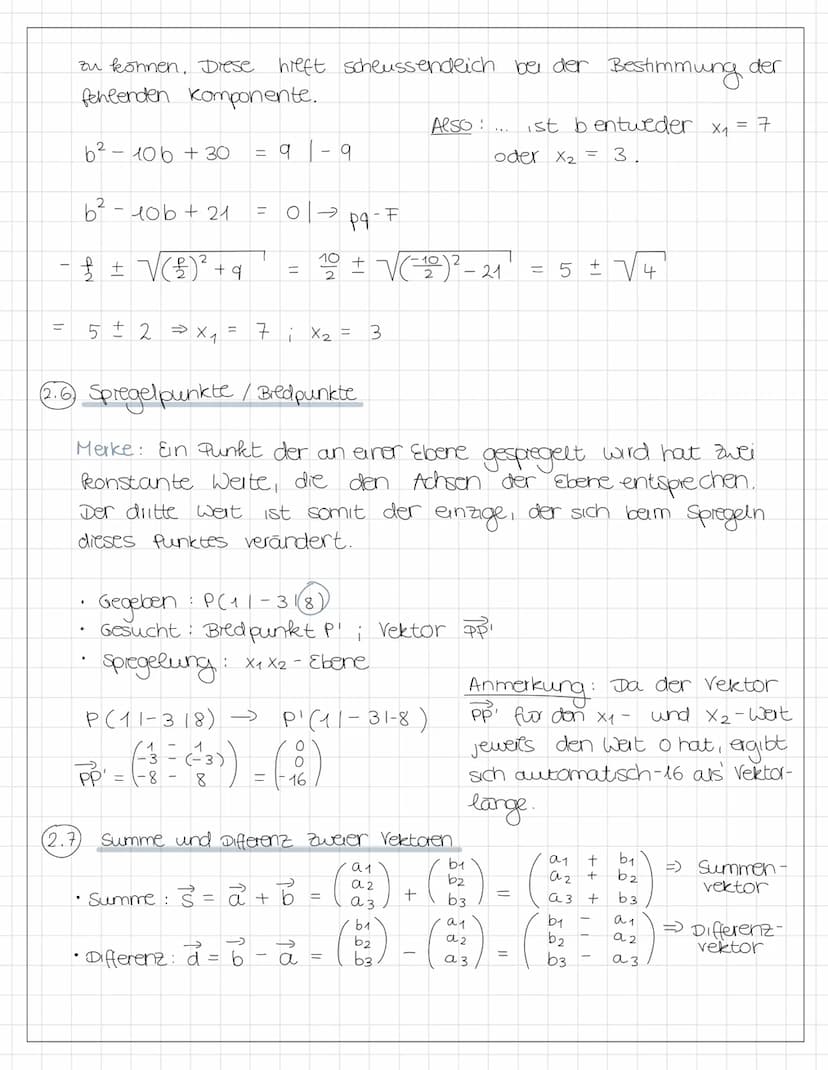 zu können. Diese hilft schlussendlich bei der Bestimmung der
fehlenden Komponente.
Also: ... ist b entweder x₁ = 7
oder x₂ = 3.
b² - 10b + 30 = 9 |- 9
b² - 10b + 21 = 0 |→ pq-F
- p/2 ± √((p/2)² + q) = 10/2 ± √((-10/2)² - 21) = 5 ± √4
= 5 ± 2 ⇒ x₁ = 7 ; x₂ = 3
2.6 Spiegelpunkte / Bildpunkte
Merke: Ein Punkt der an einer Ebene gespiegelt wird hat zwei
konstante Werte, die den Achsen der Ebene entsprechen.
Der dritte Wert ist somit der einzige, der sich beim Spiegeln
dieses Punktes verändert.
· Gegeben : P(1|-3|8)
· Gesucht : Bildpunkt P' ; Vektor PP'→
· Spiegelung : x₁x₂ - Ebene
P(1|-3|8) → P'(1|-3|-8)
PP'→ = (1 - 1; -3 - (-3); -8 - 8) = (0; 0; -16)
Anmerkung: Da der Vektor
PP'→ für den x₁- und x₂-Wert
jeweils den Wert 0 hat, ergibt
sich automatisch -16 als Vektor-
länge.
2.7 Summe und Differenz zweier Vektoren
· Summe : s→ = a→ + b→ = (a₁; a₂; a₃) + (b₁; b₂; b₃) = (a₁ + b₁; a₂ + b₂; a₃ + b₃) ⇒ Summen-
vektor
· Differenz: d→ = b→ - a→ = (b₁; b₂; b₃) - (a₁; a₂; a₃) = (b₁ - a₁; b₂ - a₂; b₃ - a₃) ⇒ Differenz-
vektor